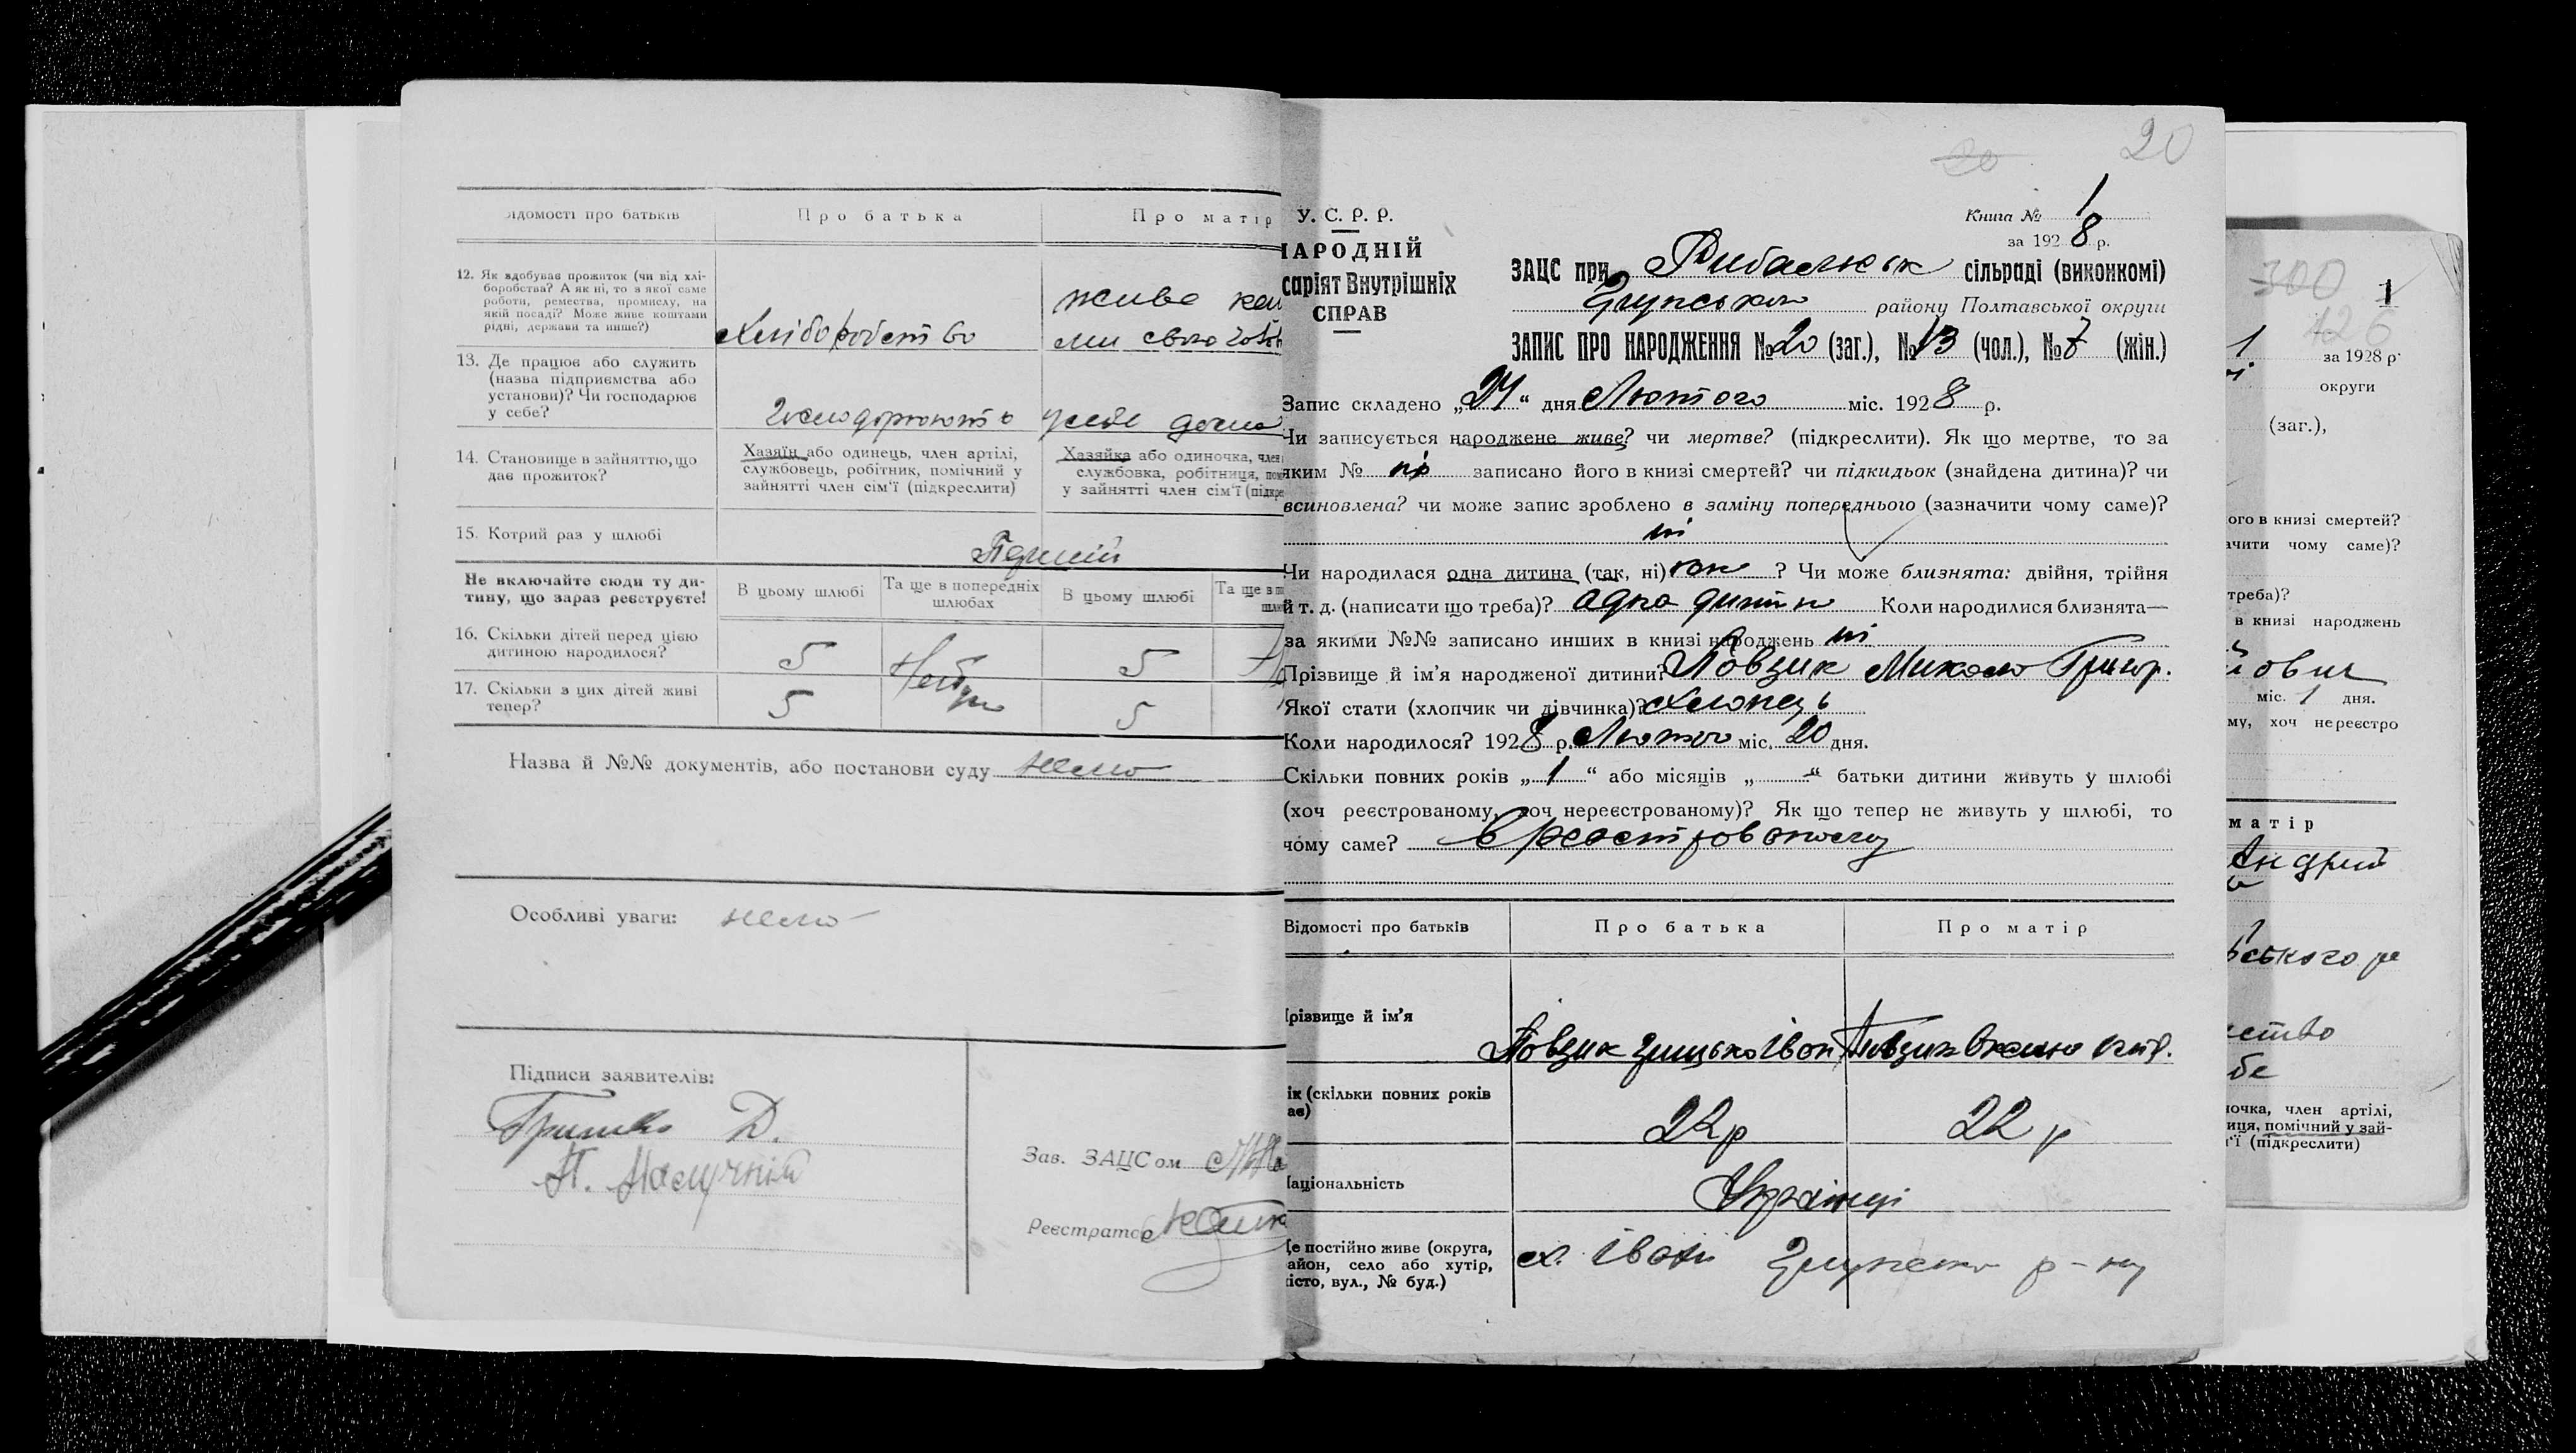 ідомості про батьків
Про батька
Про матір
12. Як здобуває прожиток (чи від хлі-
боробства? А як ні, то з якої саме
роботи, ремества, промислу, на
якій посаді? Може живе коштами
рідні, держави та инше?)
Хліборобство
живе
ми свого
13. Де працює або служить
(назва підприємства або
установи)? Чи господарює
у себе?
Господорюють у себе дома
14. Становище в зайняттю, що
дає прожиток?
Хазяїн або одинець, член артілі,
службовець, робітник, помічний у
зайнятті член сім'ї (підкреслити)
Хазяйка або одиночка, член
службовка, робітниця, пом
у зайнятті член сім'ї (підкре
15. Котрий раз у шлюбі
Перший
Не включайте сюди ту ди-
тину, що зараз реєструєте!
В цьому шлюбі
Та ще в попередніх
шлюбах
В цьому шлюбі
Та ще в п
16. Скільки дітей перед цією
дитиною народилося?
5
5
17. Скільки з цих дітей живі
тепер?
5
5
Назва й №№ документів, або постанови суду нема
Особливі уваги: нема
Підписи заявителів:
Гришко Д.
Зав. ЗАЦСом
Реєстратор
20
20
У. С. Р. Р.
НАРОДНІЙ
саріят Внутрішніх
СПРАВ
Книга № 1
за 1928 р.
ЗАЦС при Рибальськ сільраді (виконкомі)
району Полтавської округи
ЗАПИС ПРО НАРОДЖЕННЯ № 20 (заг.), № 13 (чол.), № 7 (жін.)
Запис складено „24“ дня Лютого міс. 1928 р.
Чи записується народжене живе? чи мертве? (підкреслити). Як що мертве, то за
яким № ні записано його в книзі смертей? чи підкидьок (знайдена дитина)? чи
всиновлена? чи може запис зроблено в заміну попереднього (зазначити чому саме)?
ні
Чи народилася одна дитина (так, ні) так ? Чи може близнята: двійня, трійня
й т. д. (написати що треба)? одна дитина Коли народилися близнята—
за якими №№ записано инших в книзі народжень ні
Прізвище й ім'я народженої дитини? Повзик Микола Григор.
Якої стати (хлопчик чи дівчинка)? хлопець
Коли народилося? 1928 р. Лютого міс. 20 дня.
Скільки повних років „1“ або місяців „ “ батьки дитини живуть у шлюбі
(хоч реєстрованому, хоч нереєстрованому)? Як що тепер не живуть у шлюбі, то
чому саме? в реєстрованому
Відомості про батьків
Про батька
Про матір
різвище й ім'я
Повзик Грицько Іван
Повзик
ік (скільки повних років
ає)
22 р
22 р
аціональність
Українці
е постійно живе (округа,
айон, село або хутір,
істо, вул., № буд.)
х. р-ну
300
1
426
1
за 1928 р.
округи
(заг.),
ого в книзі смертей?
ачити чому саме)?
треба)?
в книзі народжень
ович
міс. 1 дня.
му, хоч нереєстро
матір
Андрій
ського р
ство
бе
ночка, член артілі,
иця, помічний у зай-
'ї (підкреслити)